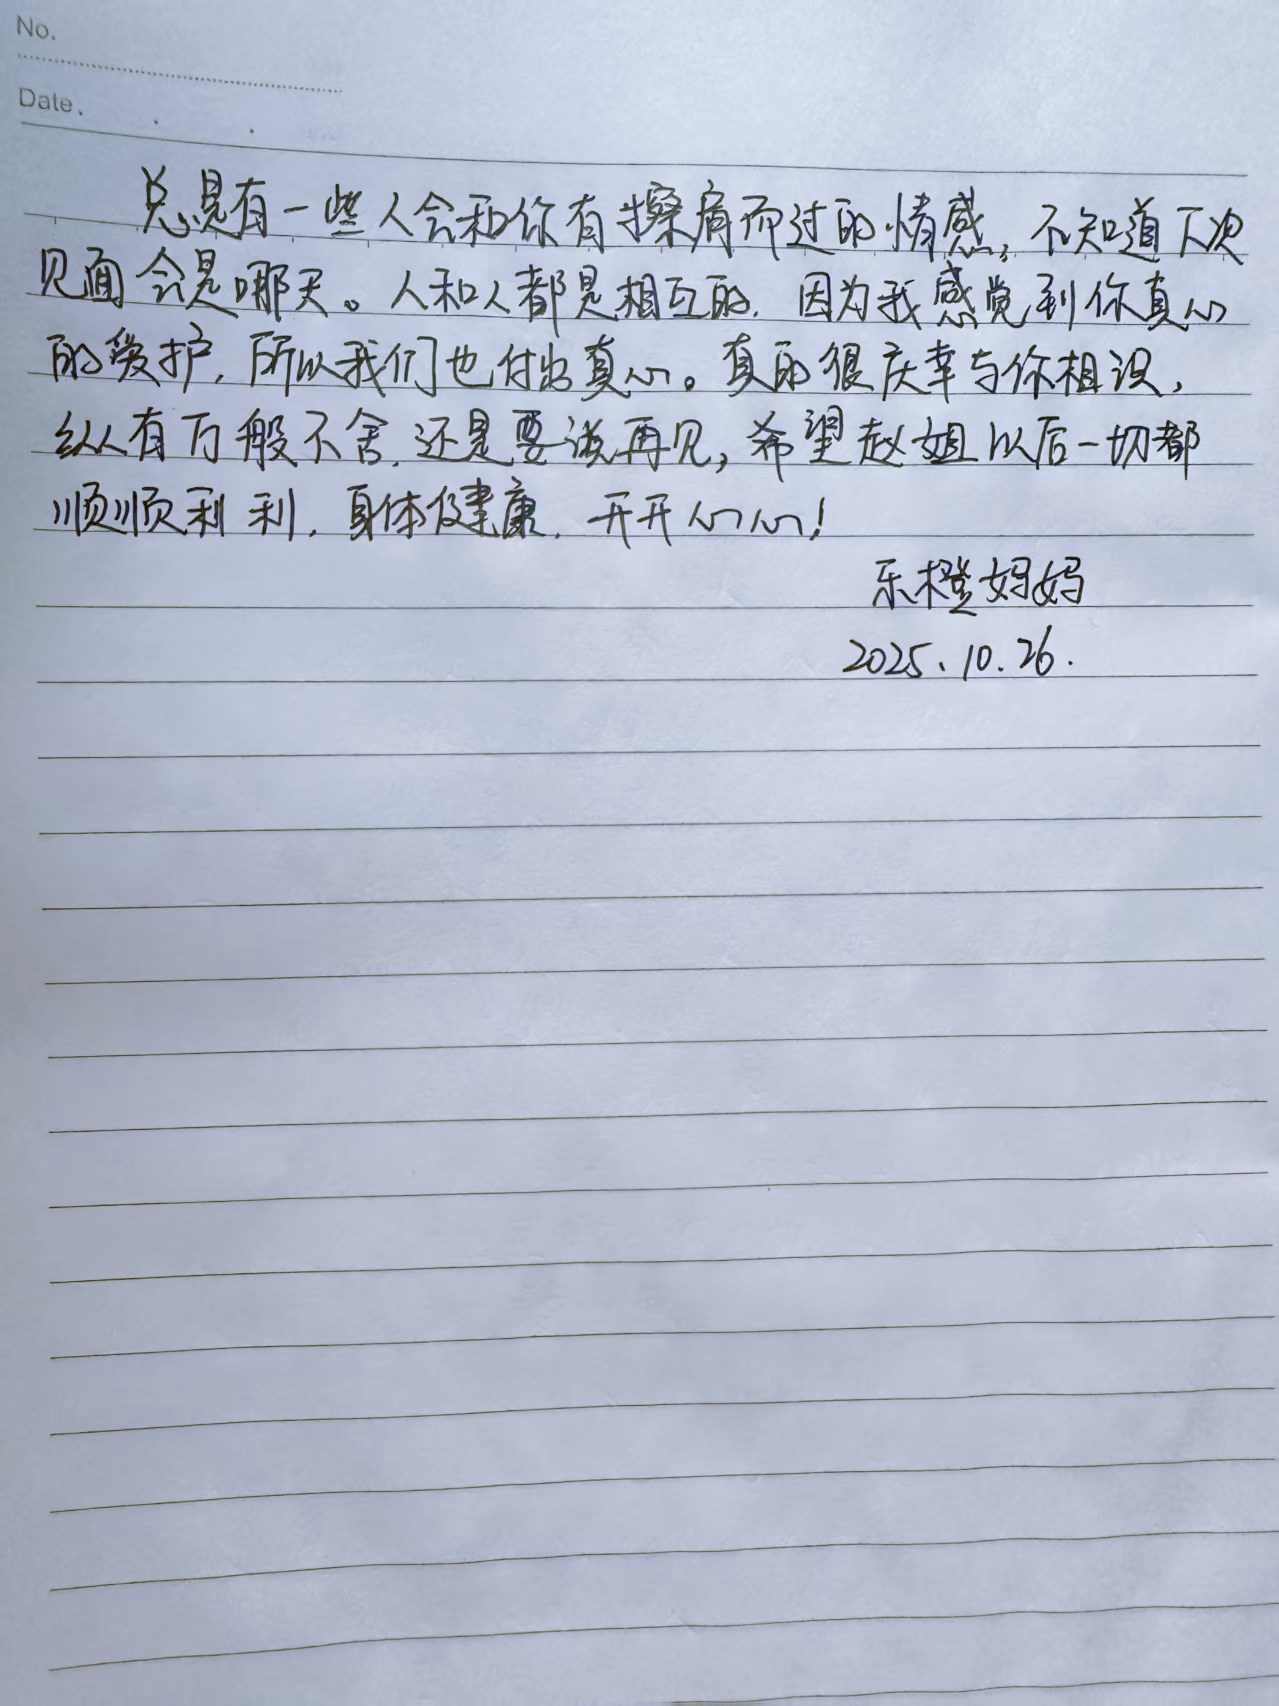 No.
Date.
总是有一些人会和你有擦肩而过的情感，不知道下次
见面会是哪天。人和人都是相互的，因为我感觉到你真心
的爱护，所以我们也付出真心。真的很庆幸与你相识，
纵有万般不舍，还是要说再见，希望赵姐以后一切都
顺顺利利，身体健康，开开心心！
乐橙妈妈
2025.10.26.